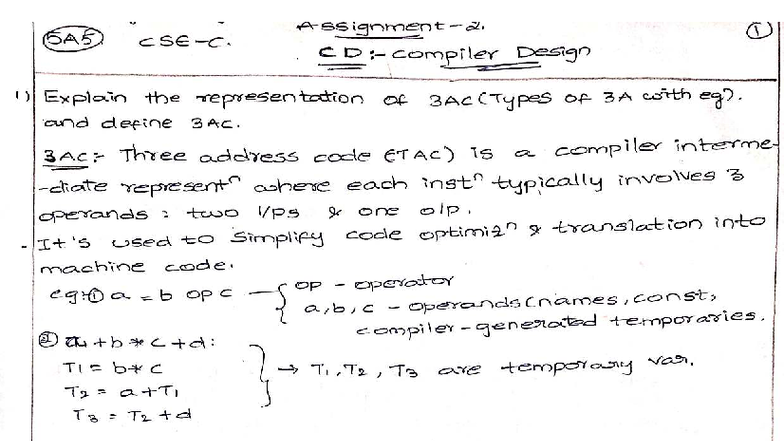 Assignment-2. ①
5A5 CSE-C.
CD:- Compiler Design
1) Explain the representation of 3AC (Types of 3A with eg).
and define 3AC.
3AC:- Three address code (TAC) is a compiler interme-
-diate representⁿ where each instⁿ typically involves 3
operands : two i/ps & one o/p.
- It's used to simplify code optimizⁿ & translation into
machine code.
eg:① a = b op c — { op - operator
a, b, c - operands (names, const,
compiler-generated temporaries.
② a + b * c + d:
T1 = b * c
T2 = a + T1 } → T1, T2, T3 are temporary var.
T3 = T2 + d